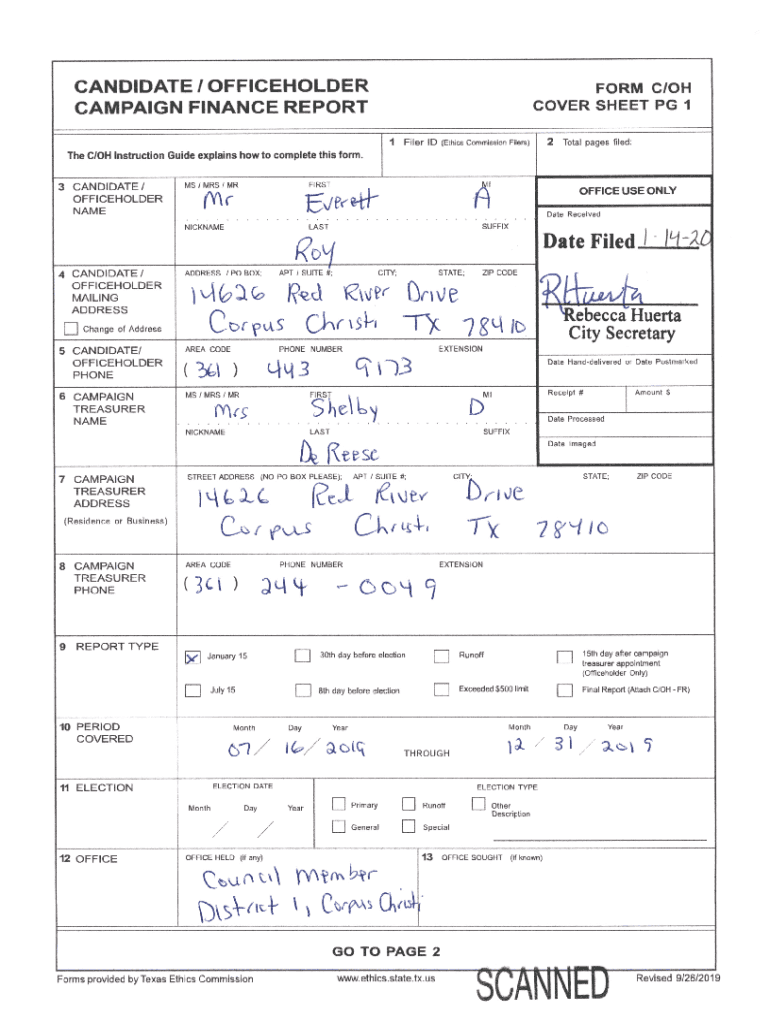 CANDIDATE / OFFICEHOLDER
CAMPAIGN FINANCE REPORT
FORM C/OH
COVER SHEET PG 1
The C/OH Instruction Guide explains how to complete this form.
1 Filer ID (Ethics Commission Filers)
2 Total pages filed:
3 CANDIDATE / OFFICEHOLDER NAME
MS / MRS / MR FIRST MI
Mr Everett A
NICKNAME LAST SUFFIX
Roy
OFFICE USE ONLY
Date Received
Date Filed 1-14-20
RHuerta
Rebecca Huerta
City Secretary
Date Hand-delivered or Date Postmarked
Receipt # Amount $
Date Processed
Date Imaged
4 CANDIDATE / OFFICEHOLDER MAILING ADDRESS
Change of Address
ADDRESS / PO BOX; APT / SUITE #; CITY; STATE; ZIP CODE
14626 Red River Drive
Corpus Christi TX 78410
5 CANDIDATE/ OFFICEHOLDER PHONE
AREA CODE PHONE NUMBER EXTENSION
(361) 443 9173
6 CAMPAIGN TREASURER NAME
MS / MRS / MR FIRST MI
Mrs Shelby D
NICKNAME LAST SUFFIX
De Reese
7 CAMPAIGN TREASURER ADDRESS
(Residence or Business)
STREET ADDRESS (NO PO BOX PLEASE); APT / SUITE #; CITY; STATE; ZIP CODE
14626 Red River Drive
Corpus Christi TX 78410
8 CAMPAIGN TREASURER PHONE
AREA CODE PHONE NUMBER EXTENSION
(361) 244 - 0049
9 REPORT TYPE
January 15 30th day before election Runoff 15th day after campaign treasurer appointment (Officeholder Only)
July 15 8th day before election Exceeded $500 limit Final Report (Attach C/OH - FR)
10 PERIOD COVERED
Month Day Year Month Day Year
07/ 16/ 2019 THROUGH 12 / 31 / 2019
11 ELECTION
ELECTION DATE ELECTION TYPE
Month Day Year Primary Runoff Other Description
/ / General Special
12 OFFICE
OFFICE HELD (if any) 13 OFFICE SOUGHT (if known)
Council Member
District 1, Corpus Christi
GO TO PAGE 2
Forms provided by Texas Ethics Commission www.ethics.state.tx.us SCANNED Revised 9/26/2019